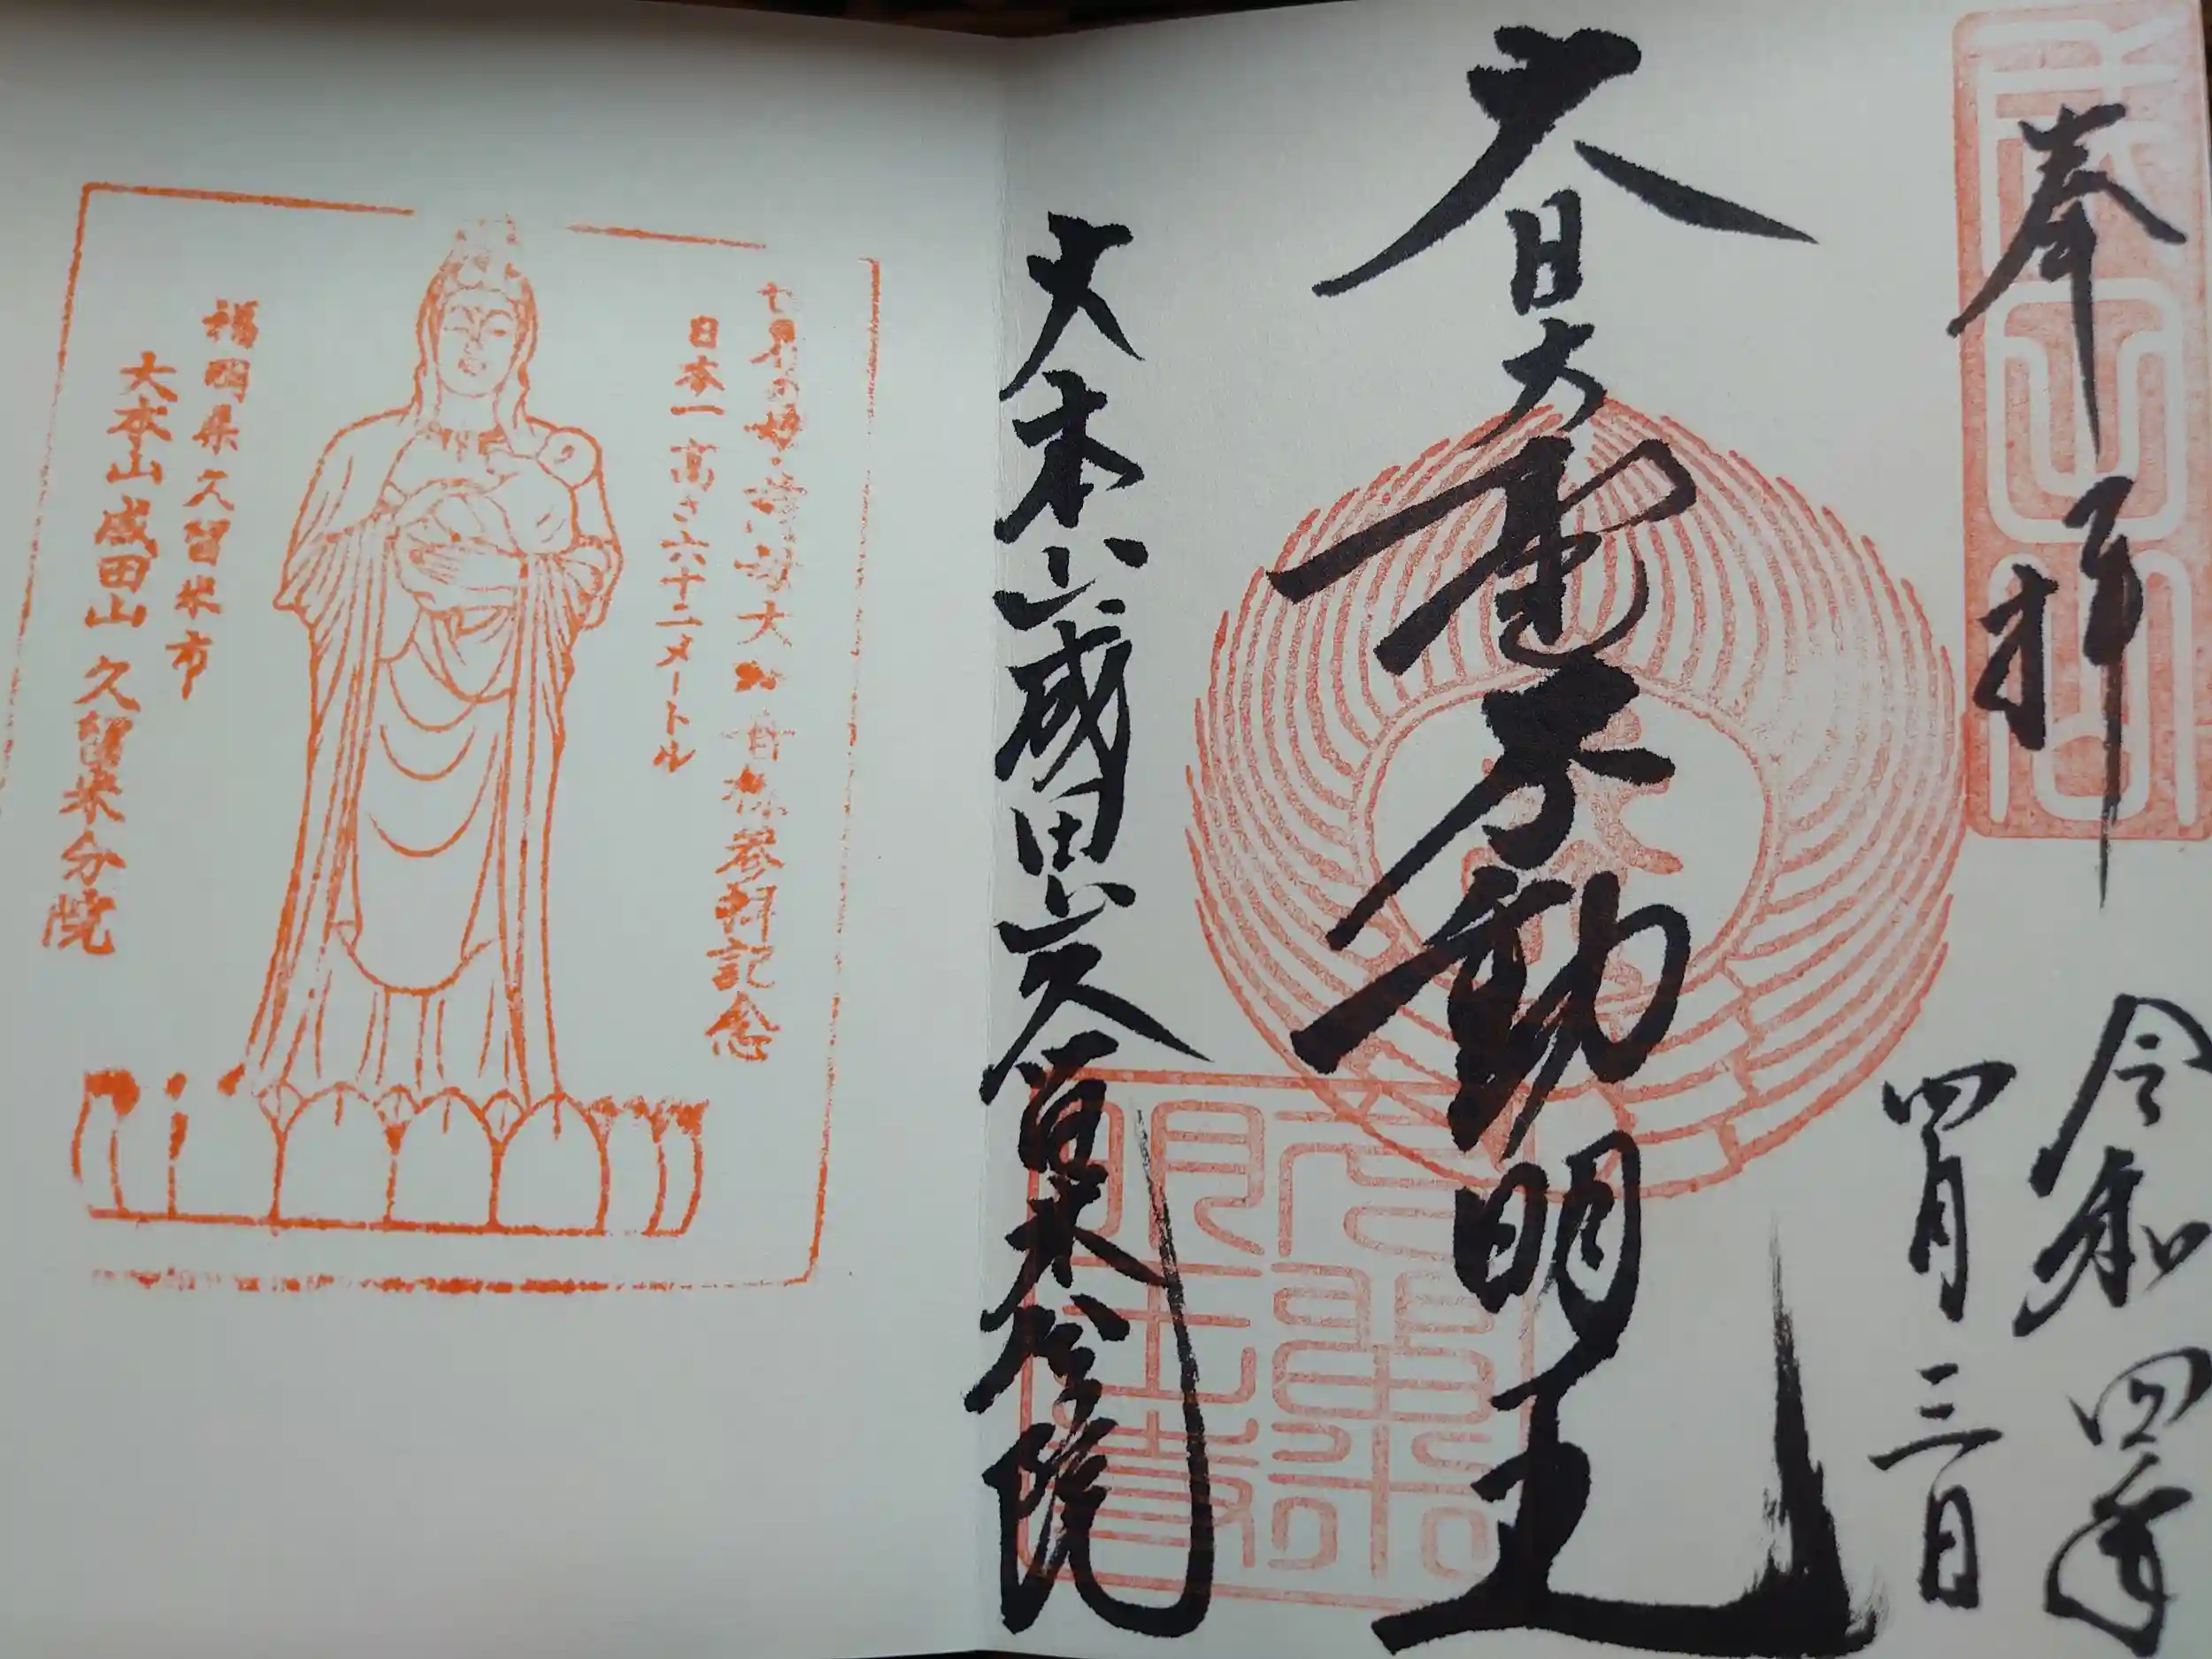 奉拝
令和四年
四月三日
大日大聖不動明王
大本山成田山久留米分院
慈母大 音様参拝記念
日本一高さ六十二メートル
福岡県久留米市
大本山成田山 久留米分院